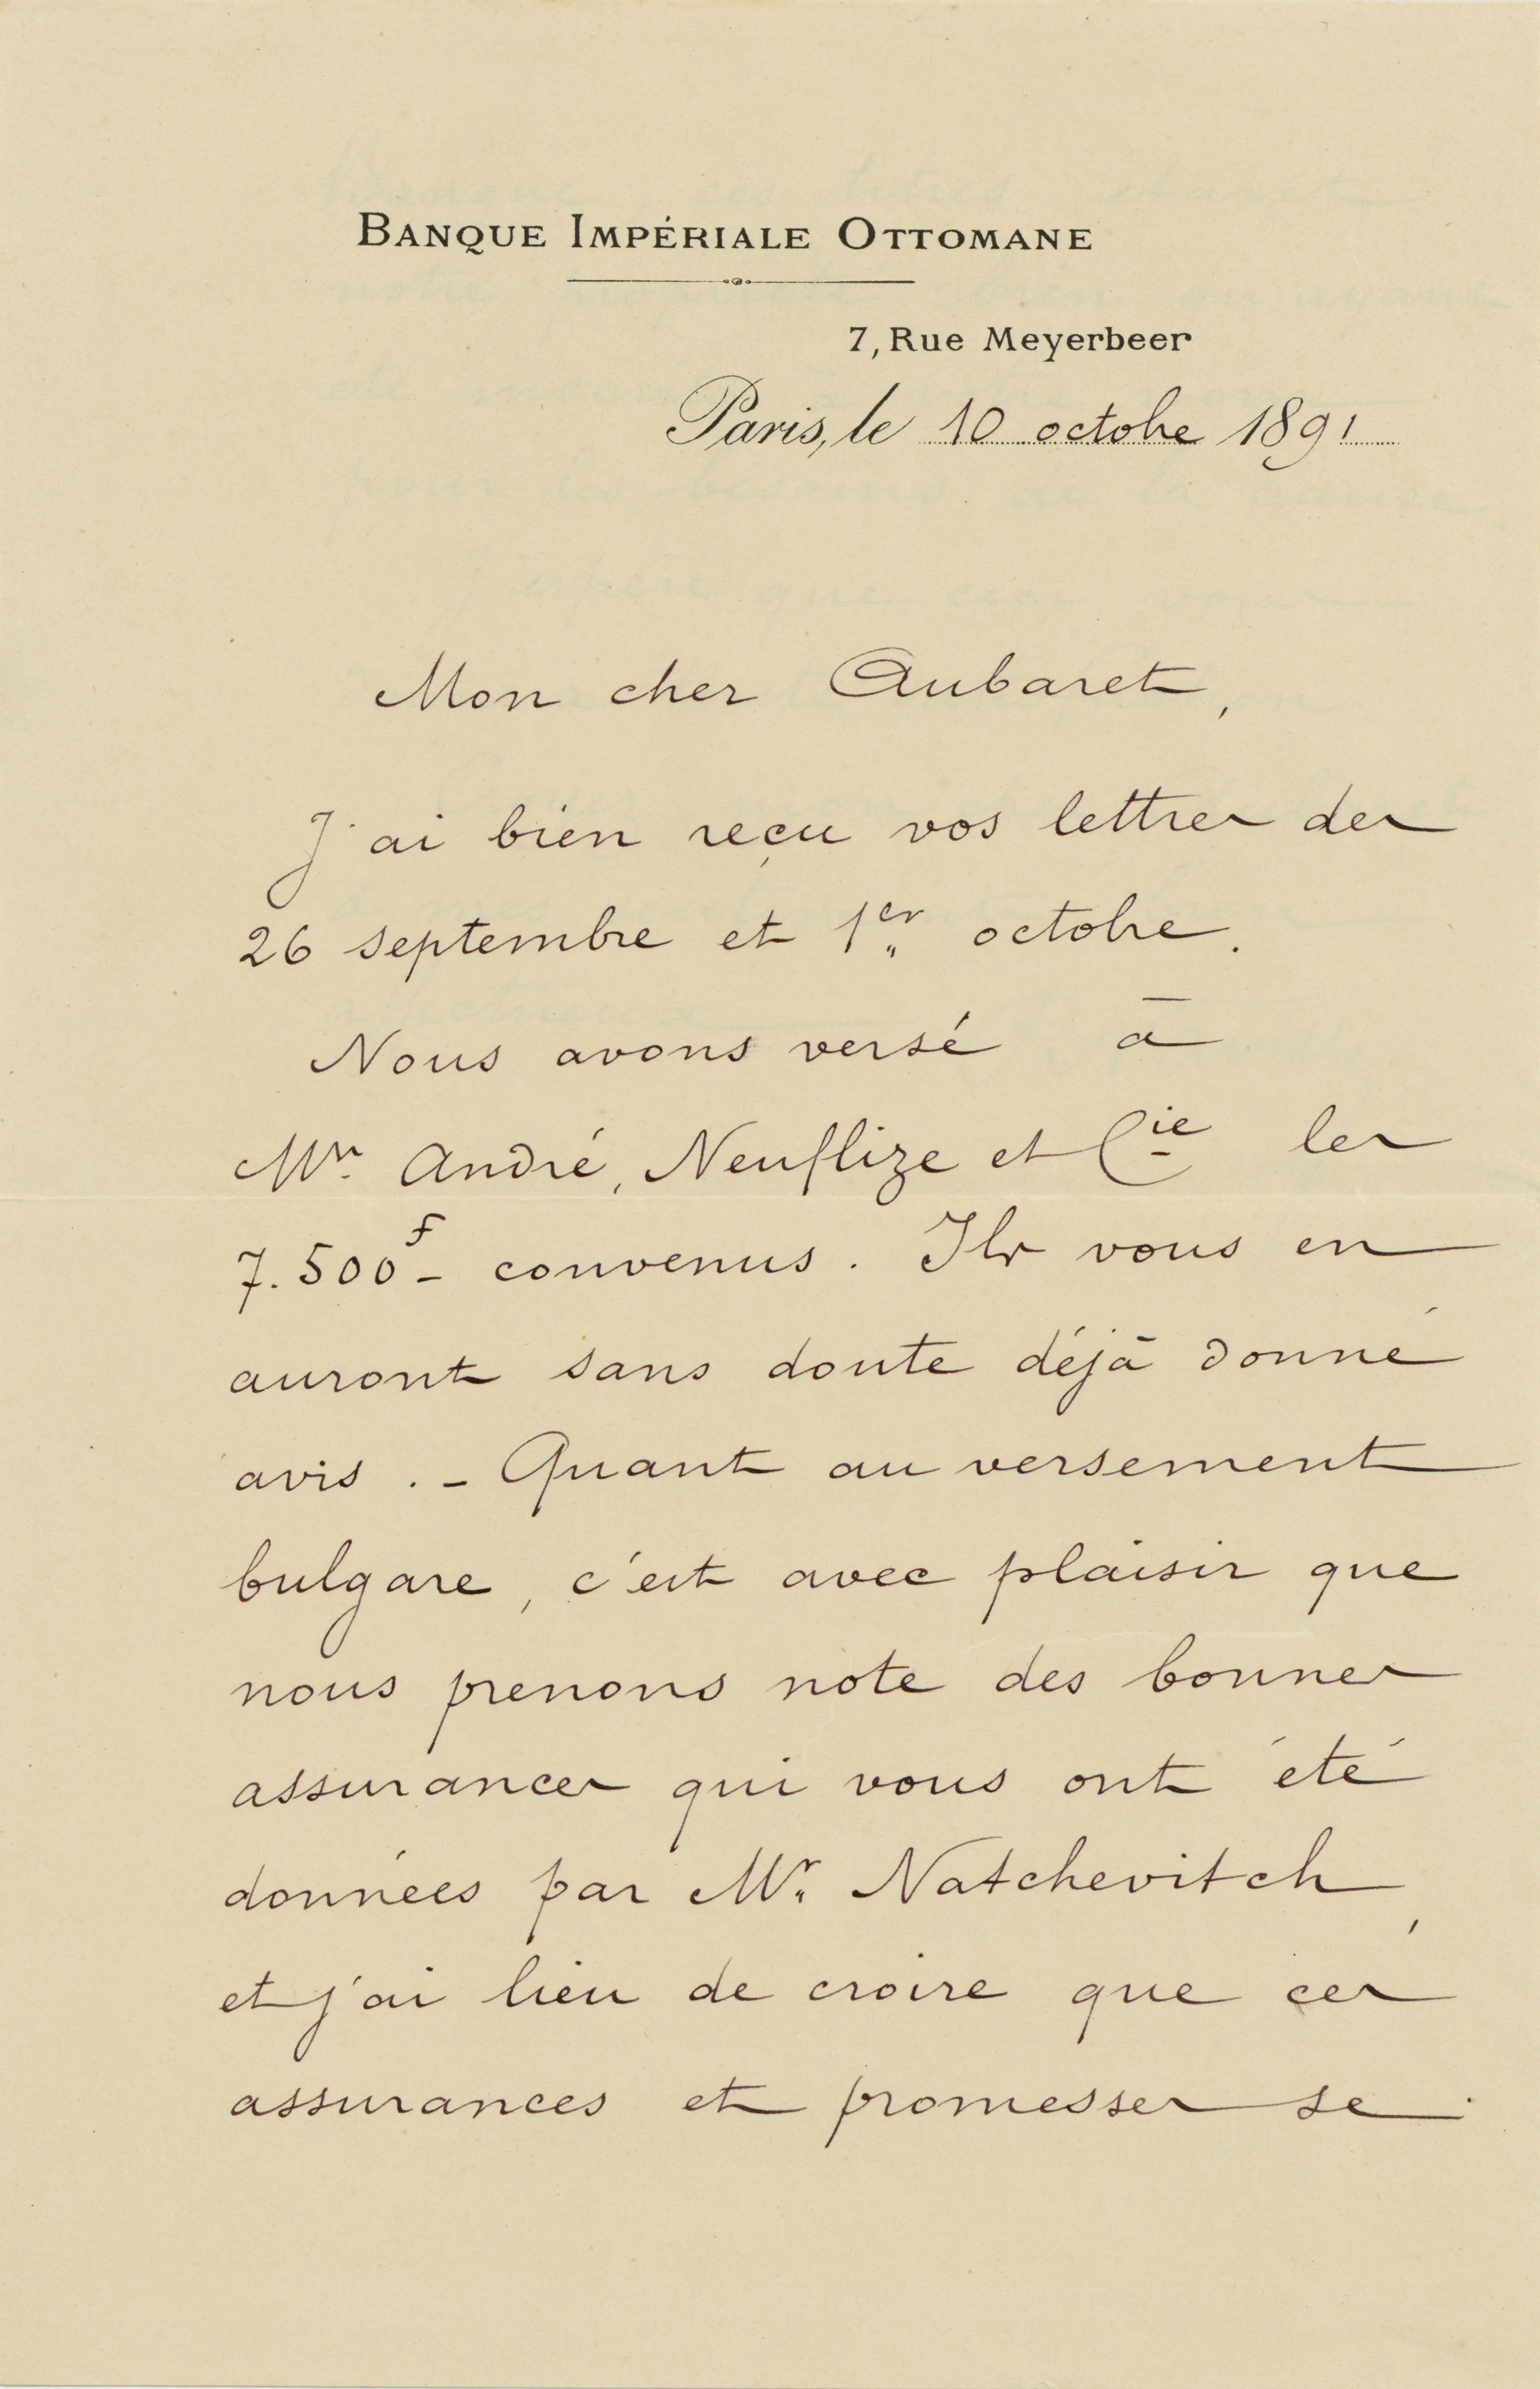 BANQUE IMPÉRIALE OTTOMANE
7, Rue Meyerbeer
Paris, le 10 octobre 1891
Mon cher Aubaret,
J'ai bien reçu vos lettres des
26 septembre et 1er octobre.
Nous avons versé à
Mrs. André, Neuflize et Cie les
7.500f - convenus. Ils vous en
auront sans doute déjà donné
avis. - Quant au versement
bulgare, c'est avec plaisir que
nous prenons note des bonnes
assurances qui vous ont été
données par Mr. Natchevitch,
et j'ai lieu de croire que ces
assurances et promesses se